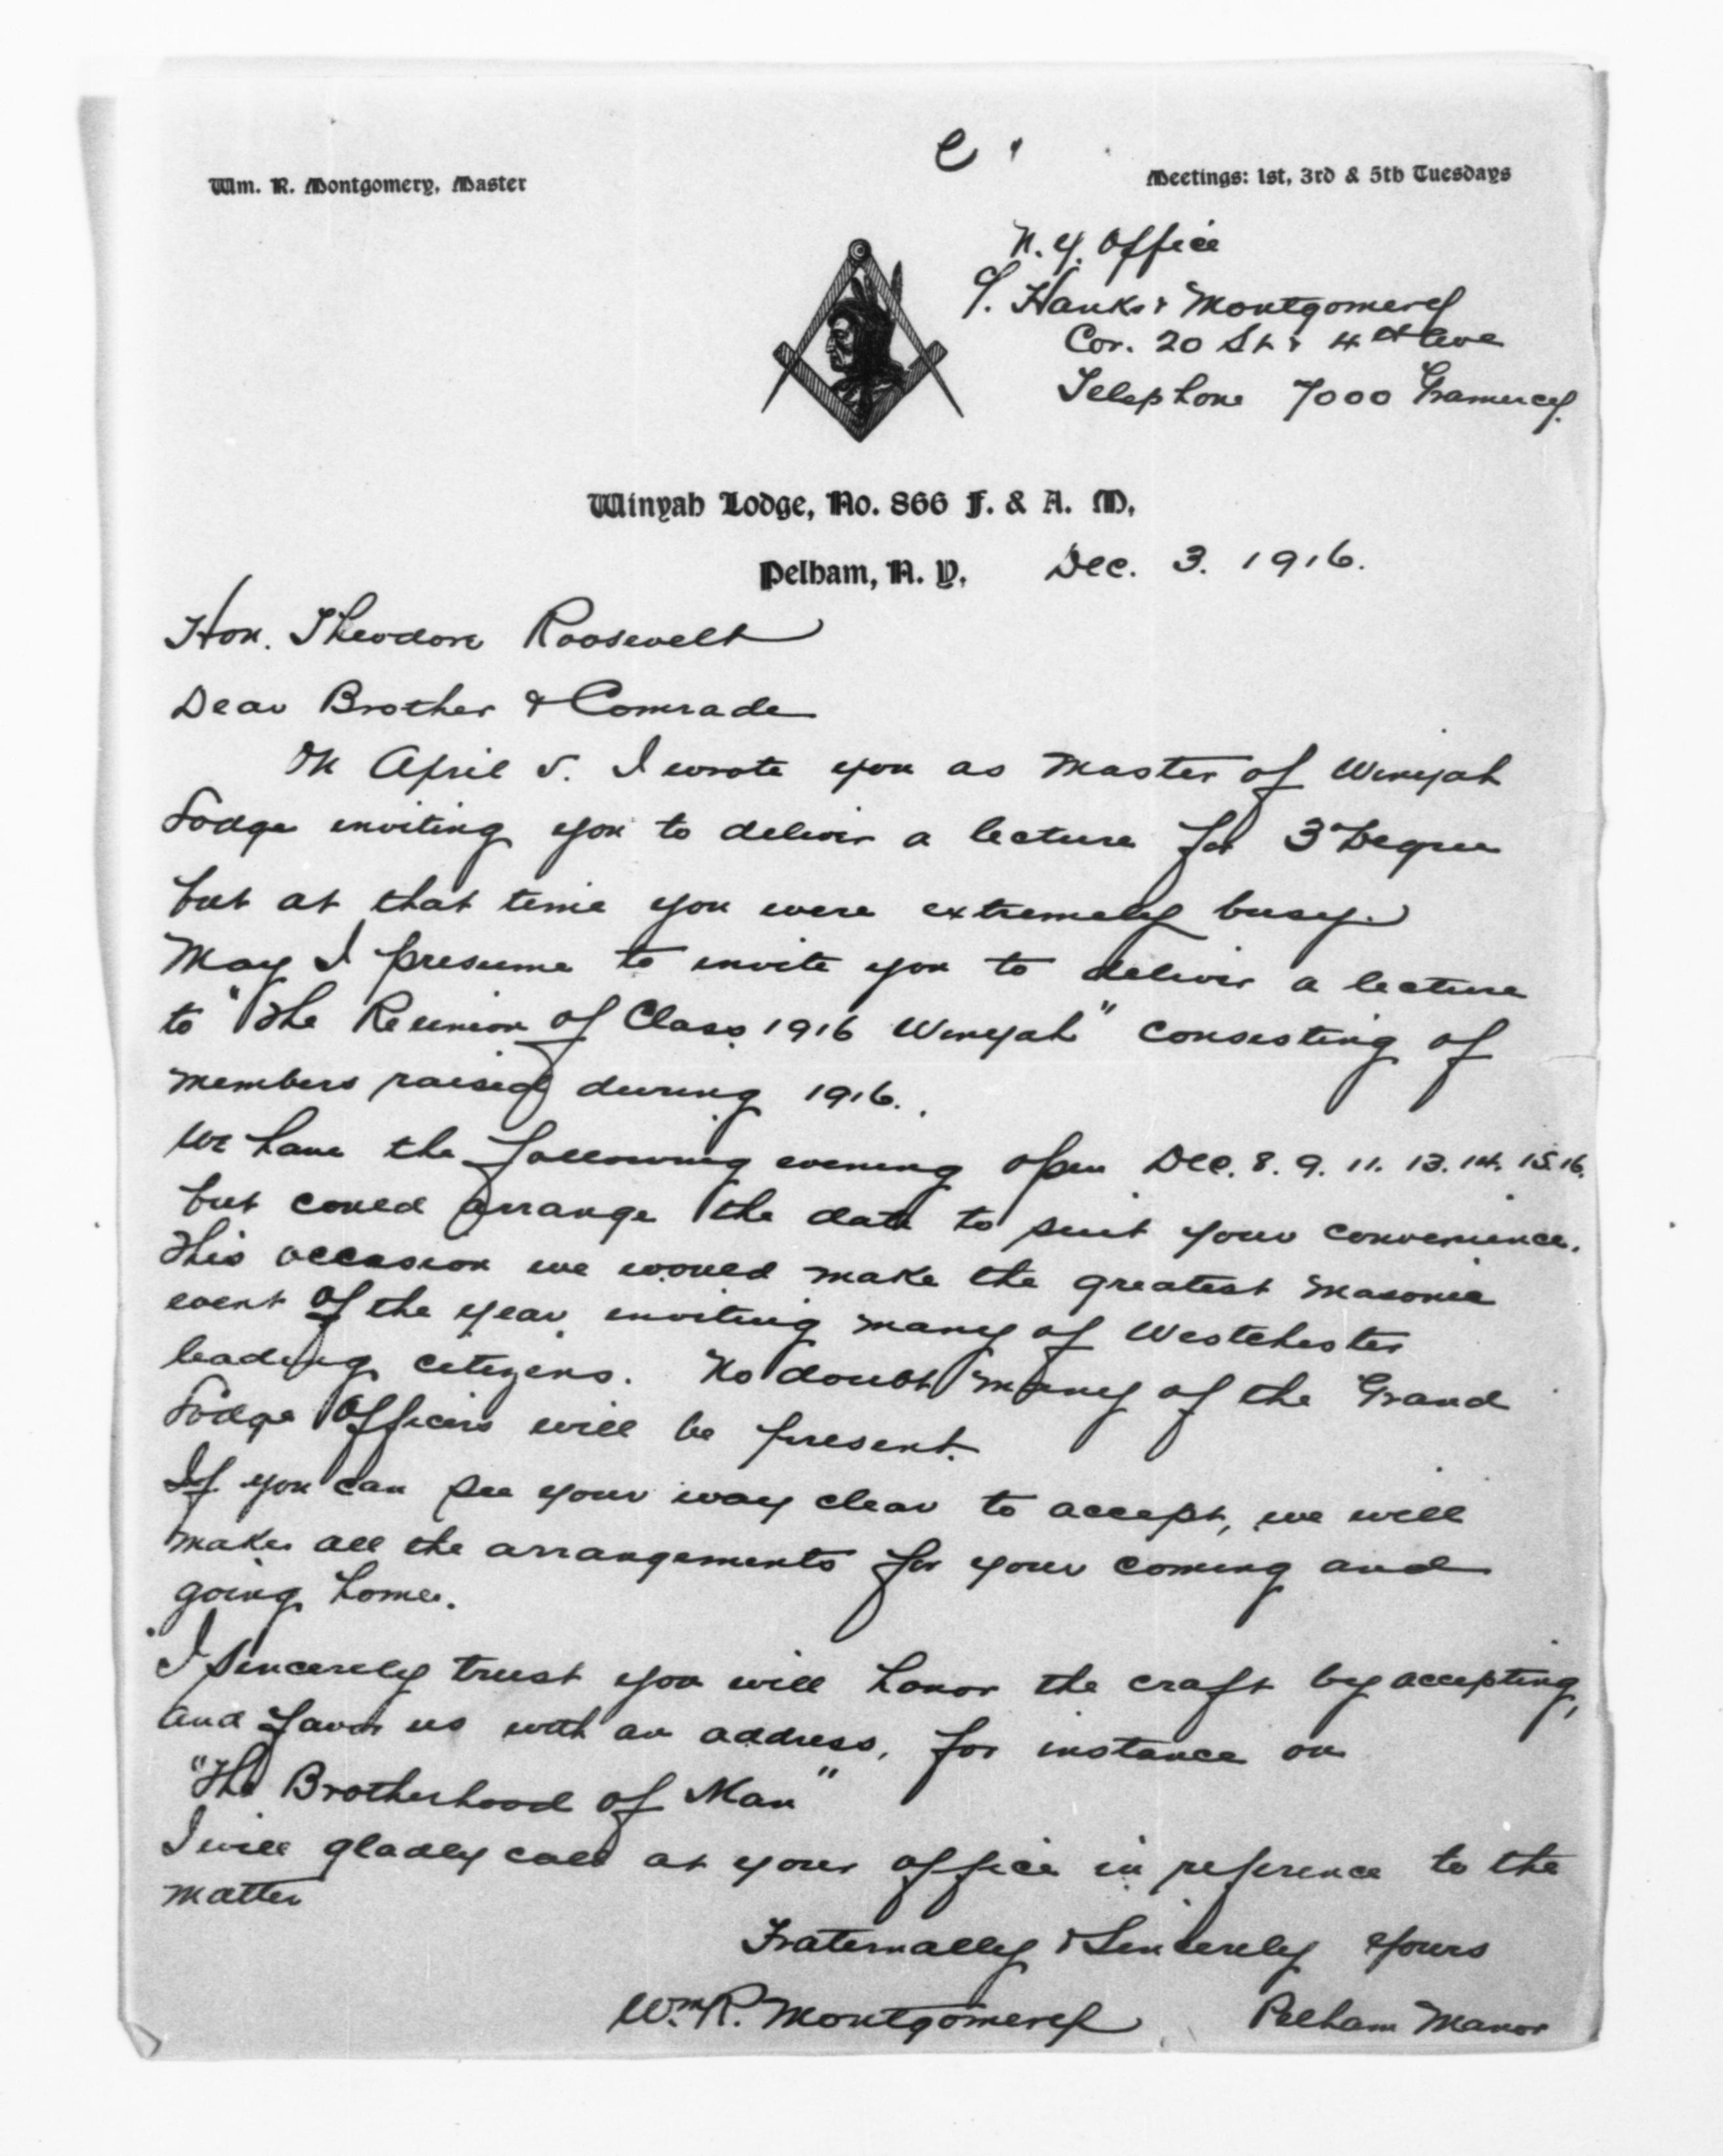 e.
Wm. R. Montgomery, Master
Meetings: 1st, 3rd & 5th Tuesdays
N.Y. Office
Hanks & Montgomery
Cor. 20 St & 4th Ave
Telephone 7000 Gramercy.
Winyah Lodge, No. 866 F. & A. M.
Pelham, N. Y. Dec. 3. 1916.
Hon. Theodore Roosevelt
Dear Brother & Comrade
On April 5. I wrote you as Master of Winyah
Lodge inviting you to deliver a lecture for 3 Degree
but at that time you were extremely busy.
May I presume to invite you to deliver a lecture
to "The Reunion of Class 1916 Winyah" consisting of
members raised during 1916.
We have the following evening open Dec. 8. 9. 11. 13. 14. 15. 16.
but could arrange the date to suit your convenience.
This occasion we would make the greatest Masonic
event of the year inviting many of Westchester
leading citizens. No doubt many of the Grand
Lodge Officers will be present.
If you can see your way clear to accept, we will
make all the arrangements for your coming and
going home.
I sincerely trust you will honor the craft by accepting,
and favor us with an address, for instance on
"The Brotherhood of Man"
I will gladly call at your office in reference to the
matter
Fraternally & Sincerely yours
Wm. R. Montgomery Pelham Manor